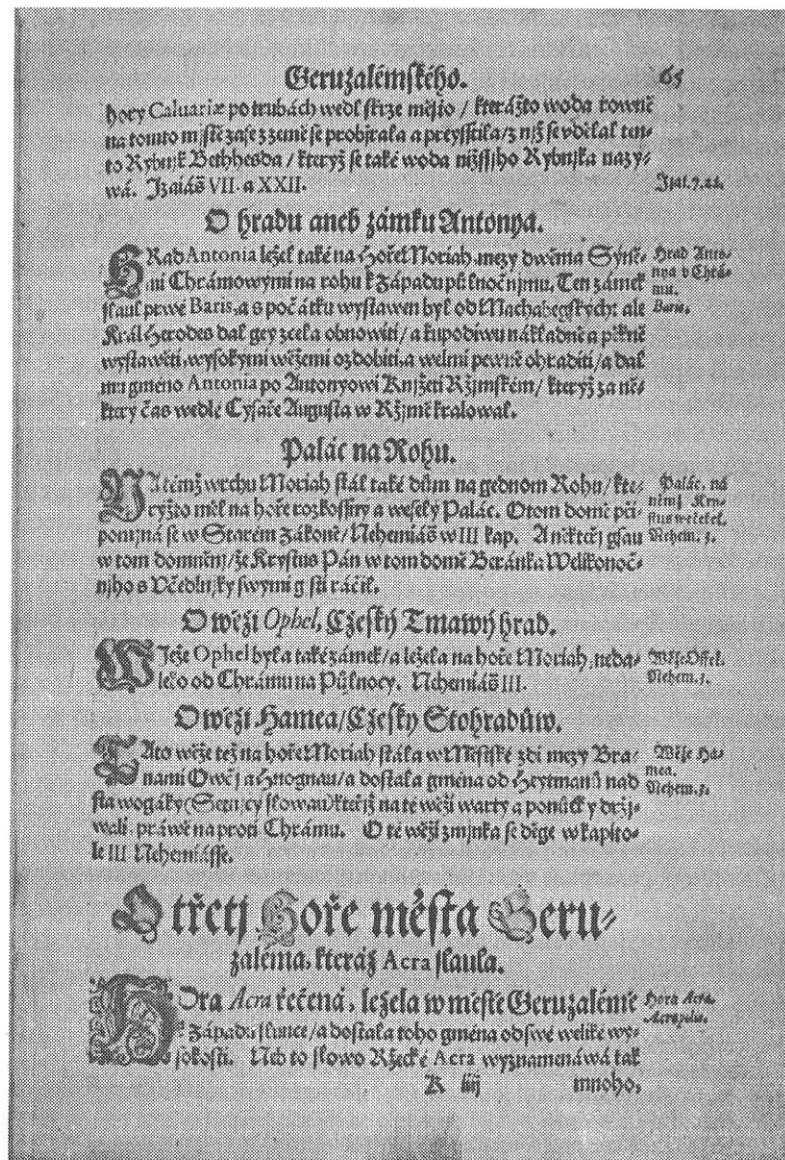 Geruzalémského. 65
hory Caluariæ po trubách wedl skrze město / kterážto woda rowně
na tomto mjstě zase z země se probjrala a preysstila / z njž se vdělal ten-
to Rybnjk Bethhesda / kterýž se také woda nižssjho Rybnjka nazy-
wá. Izaiáš VII. a XXII.
Izai. 7. 22.
O hradu aneb zámku Antonya.
HRad Antonia ležel také na Hoře Moriah, mezy dwěma Syně-
mi Chrámowými na rohu k Západu půlnočnjmu. Ten zámek
slaul prwé Baris, a s počátku wystawen byl od Machabegských: ale
Král Herodes dal gey zcela obnowiti / a ku podiwu nákladně a pěkně
wystawěti, wysokými wěžemi ozdobiti, a welmi pewně ohraditi / a dal
mu gméno Antonia po Antonyowi Knjžeti Ržjmském / kterýž za ně-
který čas wedlé Cysaře Augusta w Ržjmě kralowal.
Hrad Anto-
nya v Chrá-
mu.
Baris.
Palác na Rohu.
NA témž wrchu Moriah stál také dům na gednom Rohu / kte-
ryžto měl na hoře rozkossný a weselý Palác. O tom domě při-
pomjná se w Starém Zákoně / Nehemiáš w III kap. A někteřj gsau
w tom domněnj / že Krystus Pán w tom domě Beránka Welikonoč-
njho s Včedlnjky swými gjsti ráčil.
Palác, na
němž Kry-
stus wečeřel.
Nehem. 3.
O wěži Ophel, Cžeský Tmawý hrad.
WJeže Ophel byla také zámek / a ležela na hoře Moriah, neda-
leko od Chrámu na Půlnocy. Nehemiáš III.
Wěže Offel.
Nehem. 3.
O wěži Hamea / Cžesky Stohradůw.
TAto wěže též na hoře Moriah stála w Městské zdi mezy Bra-
nami Owčj a Hnognau / a dostala gména od Heytmanů nad
sta wogáky (Setnjcy slowau) kteřjž na té wěži warty a ponůcky drži-
wali, práwě na proti Chrámu. O té wěži zmjnka se děge w kapito-
le III Nehemiásse.
Wěže Ha-
mea.
Nehem. 3.
O třetj Hoře města Geru-
zaléma, kteráž Acra slaula.
HOra Acra řečená, ležela w městě Geruzalémě
k Západu slunce / a dostala toho gména od swé weliké wy-
sokosti. Neb to slowo Ržecké Acra wyznamenáwá tak
Hora Acra.
Acropolis.
K iiij mnoho,